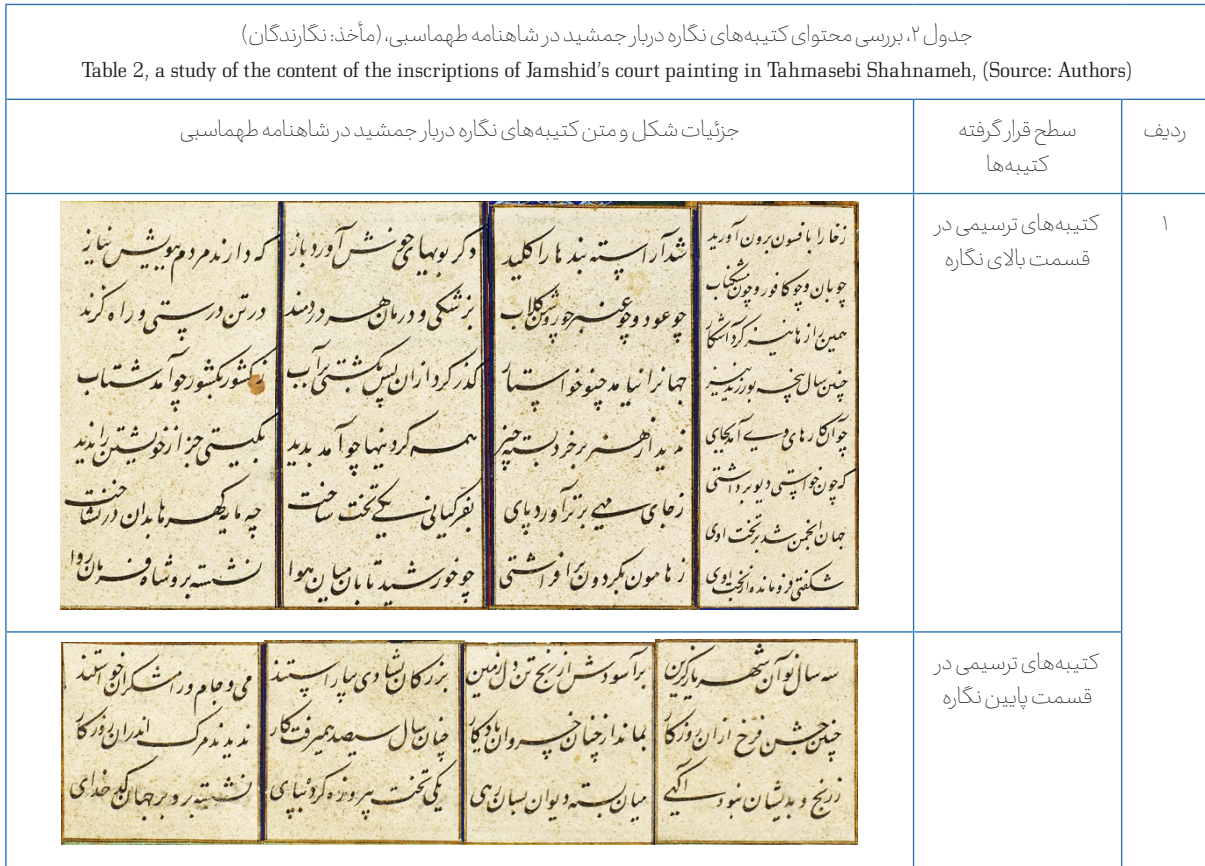 جدول ۲، بررسی محتوای کتیبه‌های نگاره دربار جمشید در شاهنامه طهماسبی، (مأخذ: نگارندگان)
Table 2, a study of the content of the inscriptions of Jamshid's court painting in Tahmasebi Shahnameh, (Source: Authors)
ردیف
سطح قرار گرفته
کتیبه‌ها
جزئیات شکل و متن کتیبه‌های نگاره دربار جمشید در شاهنامه طهماسبی
۱
کتیبه‌های ترسیمی در
قسمت بالای نگاره
زخارا بافسون برون آورید
چو بان و چو کافور و چون مشکناب
همین رازها نیز کرد آشکار
چنین سال پنجه بورزید نیز
چو آن کارهای وی آمد بجای
که چون خواستی دیو برداشتی
جهان انجمن شد بر تخت اوی
شکفتی فرومانده از بخت اوی
شد آراسته بندها را کلید
چو عود و چو عنبر چو روشن کلاب
جهانرا نیامد چنو خواستار
ندید از هنر بر خرد بسته چیز
زجای مهی برتر آورد پای
زهامون بکردون برافراشتی
دکر بویهای خوش آورد باز
پزشکی و درمان هر دردمند
کذر کرد ازان پس بکشتی بر آب
همه کردنیها چو آمد بدید
بفر کیانی یکی تخت ساخت
چو خورشید تابان میان هوا
که دارند مردم ببویش نیاز
در تن درستی و راه کزند
زکشور بکشور چو آمد شتاب
بکیتی جز از خویشتن را ندید
چه مایه کهرها بدان درنشاخت
نشسته برو شاه فرمان روا
کتیبه‌های ترسیمی در
قسمت پایین نگاره
سه سال نو آن شهریار کزین
چنین جشن فرخ ازان روزکار
زرنج و بدیشان نبود آکهی
برآسودش از رنج تن دل زمین
بماند از چنان خسروان یادکار
میان بسته دیوان بسان رهی
بزرکان بشادی بیاراستند
چنان سال سیصد همیرفت کار
یکی تخت پیروزه کرد بپای
می و جام و رامشکران خواستند
ندیدند مرک اندران روزکار
نشسته برو بر جهان کدخدای